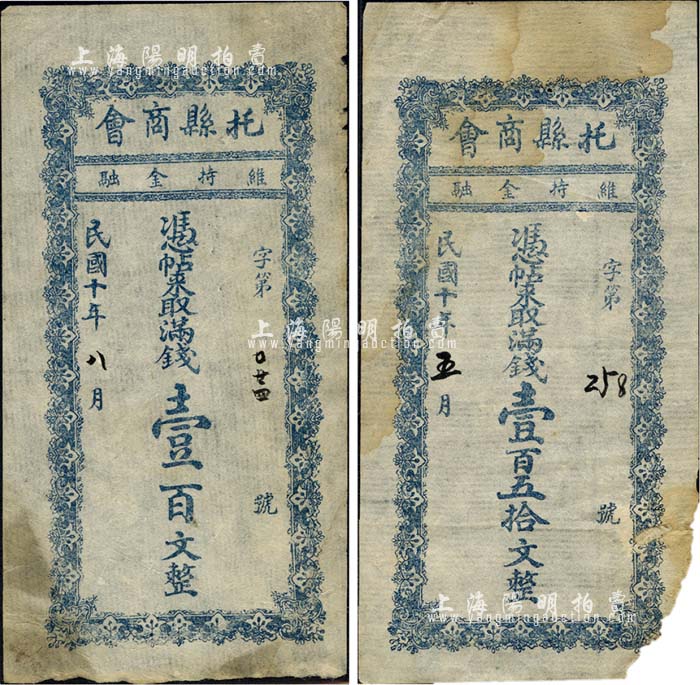 上海陽明拍賣
www.yangmingauction.com
托縣商會
維持金融
字第 0廿四 號
憑帖來取滿錢壹百文整
民國十年八月
上海陽明拍賣
www.yangmingauction.com
托縣商會
維持金融
字第 258 號
憑帖來取滿錢壹百五拾文整
民國十年五月
上海陽明拍賣
www.yangmingauction.com